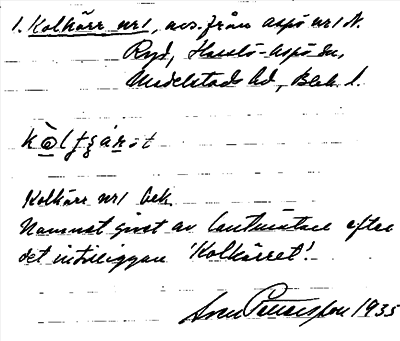 1. Kolkärr nr1, avs. från Aspö nr1 N.
Ryd, Hasslö-Aspö sn,
Medelstads hd, Blek. l.
Kolkärr nr1 bek.
Namnet givet av lantmätare efter
det intilliggan 'Kolkärret'.
Sven Pettersson 1935